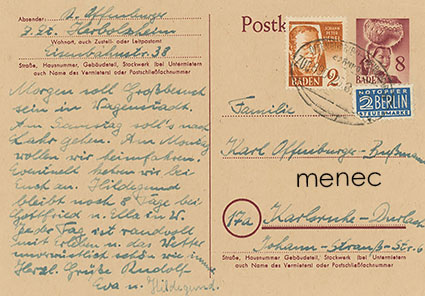 Absender: A. Offenburger
z. Zt. Herbolzheim
Wohnort, auch Zustell- oder Leitpostamt
Eisenbahnstr. 38
Straße, Hausnummer, Gebäudeteil, Stockwerk (bei Untermietern
auch Name des Vermieters) oder Postschließfachnummer
Morgen soll Großbesuch
sein in Wagenstadt.
Am Samstag soll's nach
Lahr gehen. Am Montag
wollen wir heimfahren.
Eventuell kehren wir bei
Euch an. Hildegund
bleibt noch 8 Tage bei
Gottfried u. Ella in W.
Jeder Tag ist randvoll
mit Erleben u. das Wetter
unverwüstlich schön wie immer
Herzl. Grüße Rudolf
Eva u. Hildegund.
Postk
JOHANN
PETER
HEBEL
2
BADEN
8
BADEN
NOTOPFER
2 BERLIN
STEUERMARKE
Familie
Karl Offenburger-Bußmann
menec
17a Karlsruhe-Durlach
Johann-Strauß-Str. 6
Straße, Hausnummer, Gebäudeteil, Stockwerk (bei Untermietern
auch Name des Vermieters) oder Postschließfachnummer